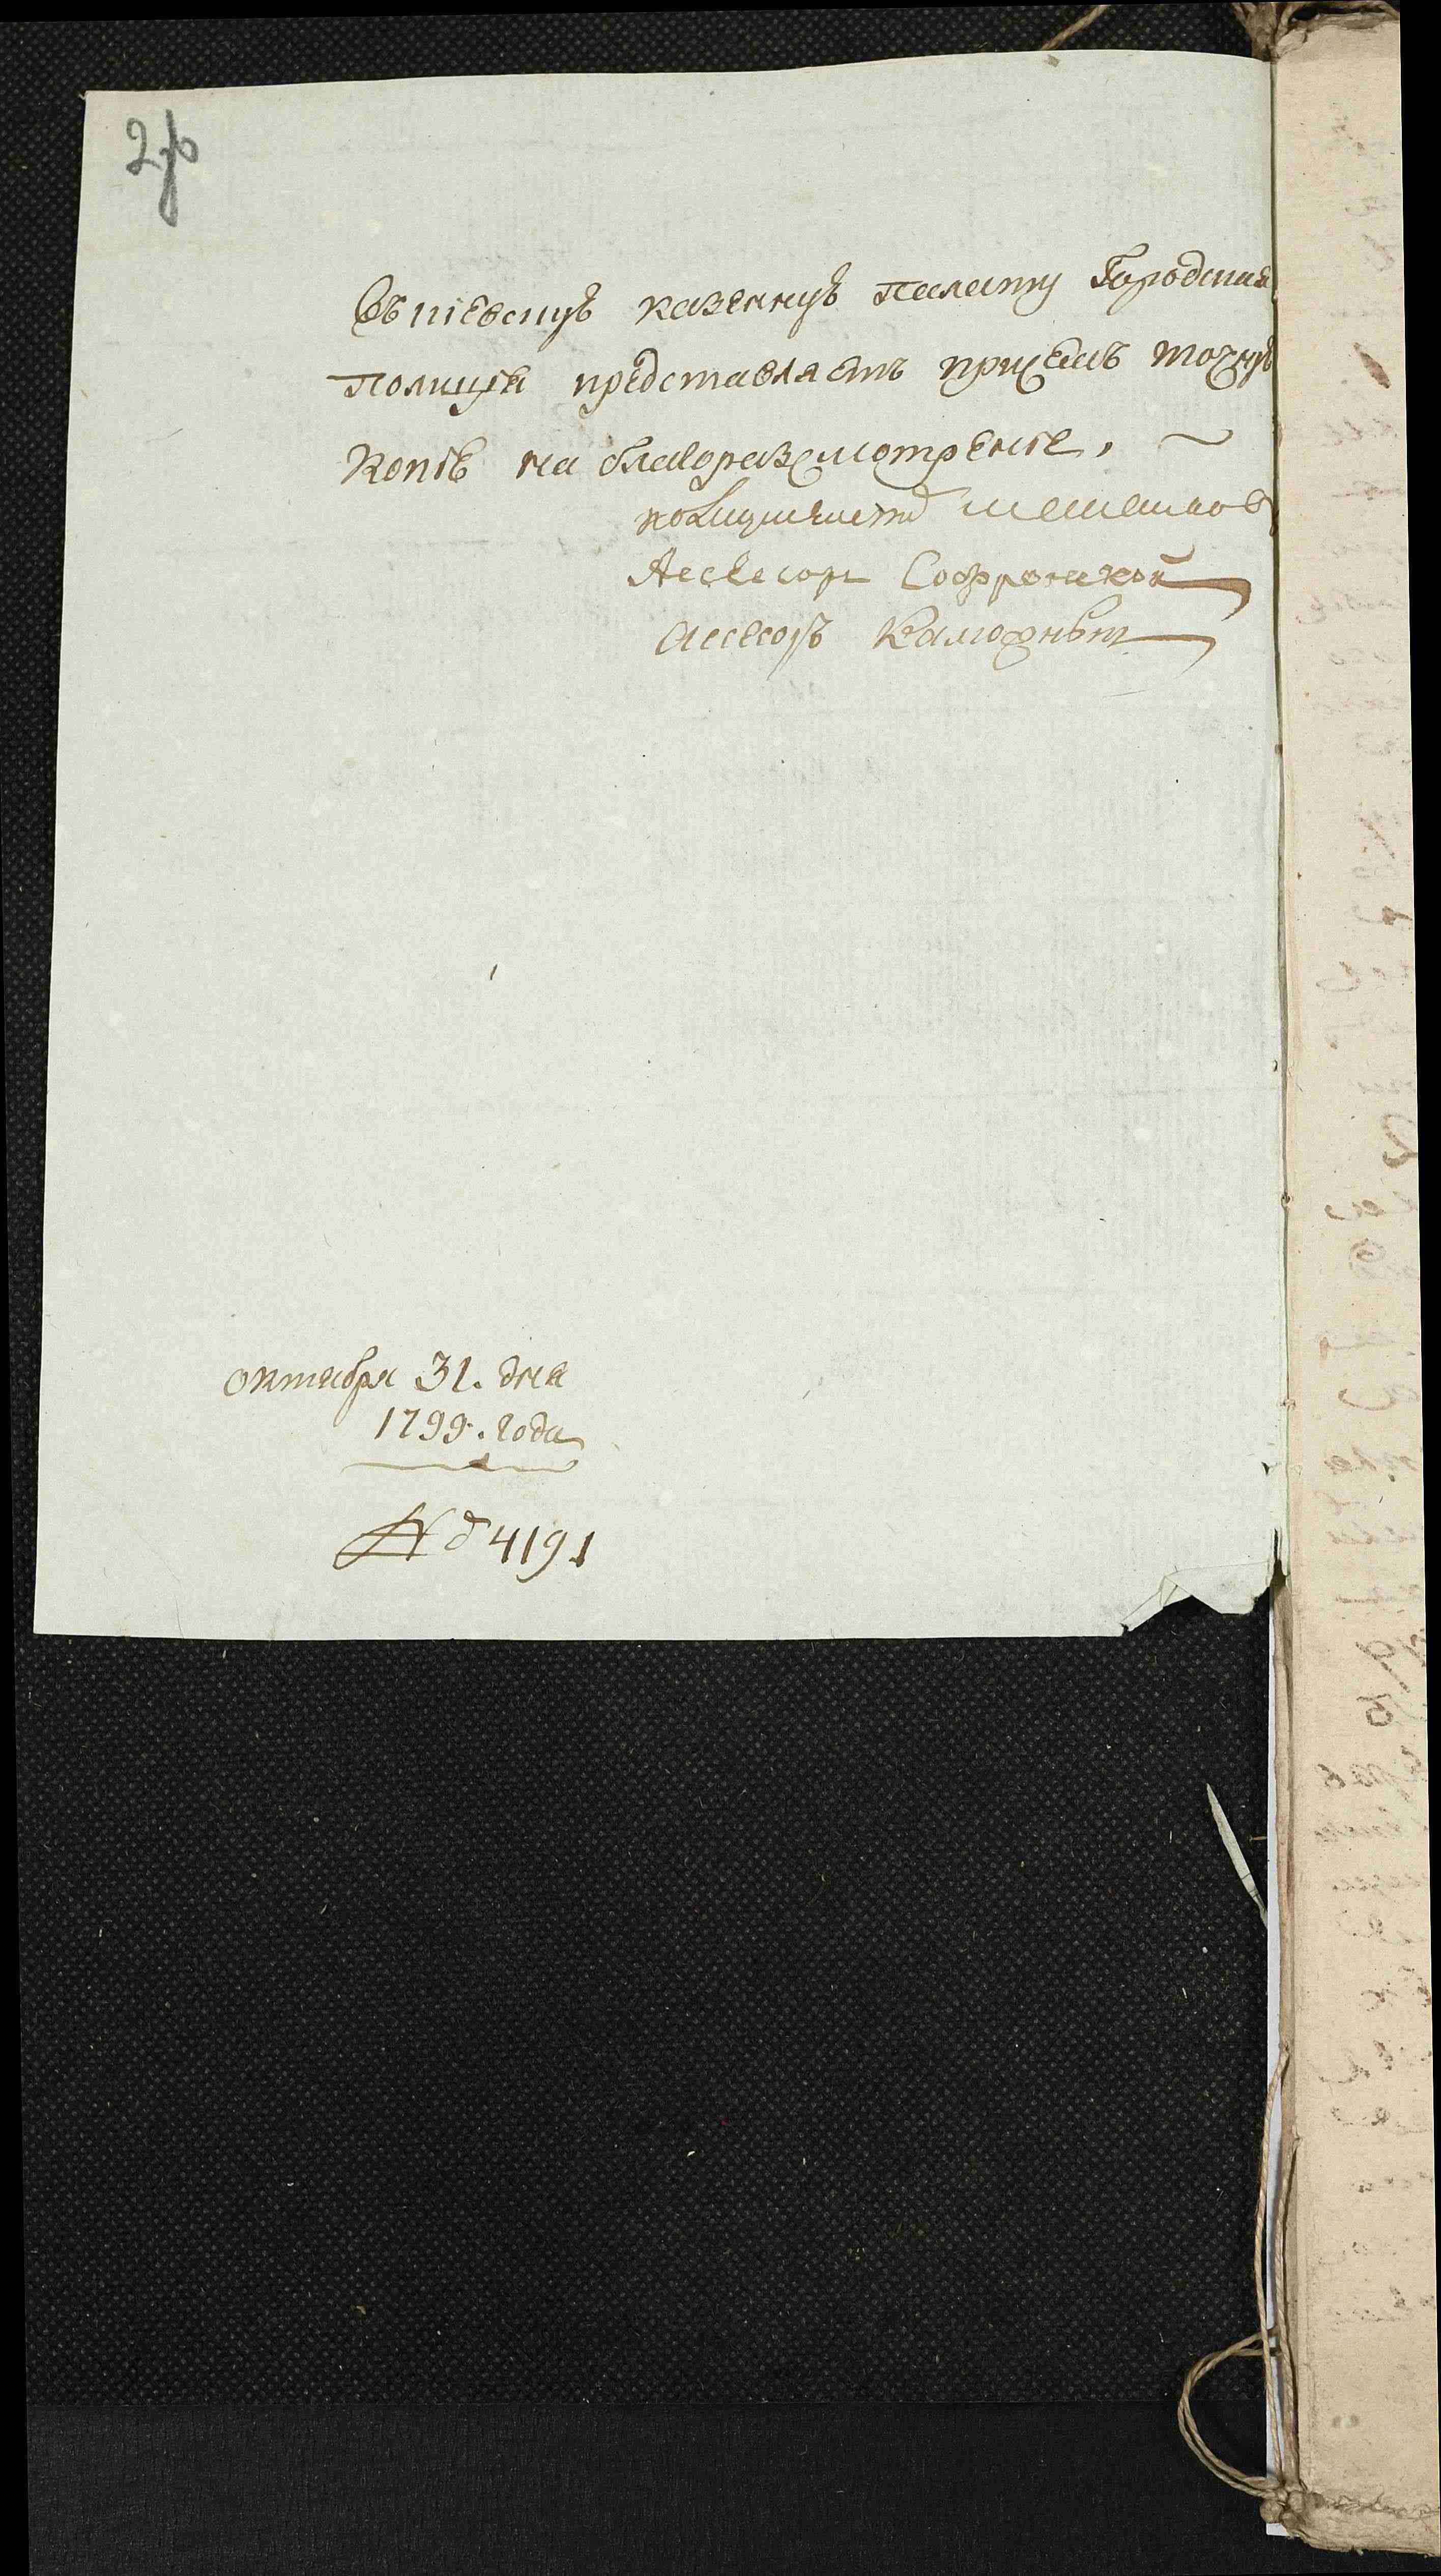 2об
Въ киевскую казенную палату Городская
Полиция представляетъ присемъ точную
копію на благоразсмотреніе.
полицмейстер
Ассесоръ Софроницкой
ассесоръ
октября 31. дня
1799. года
№ 4191